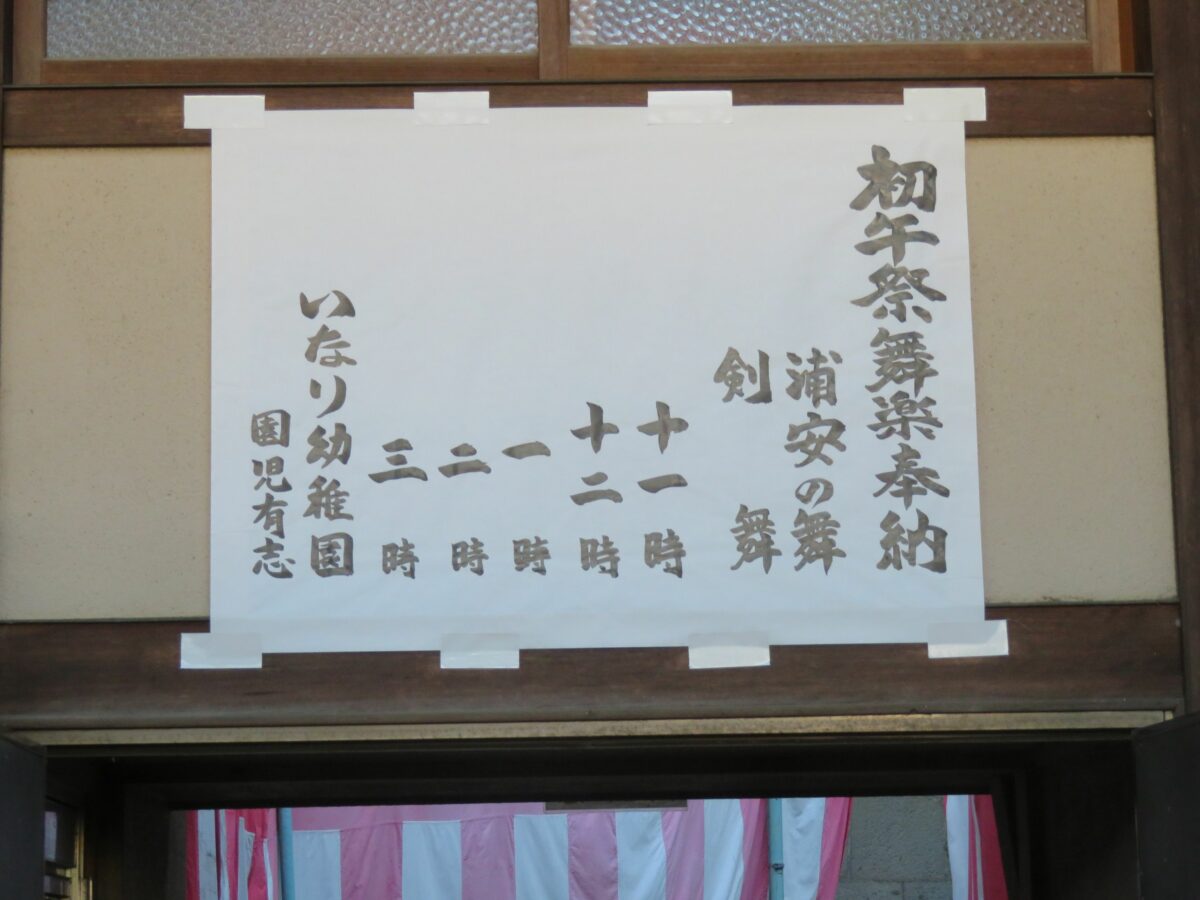 初午祭舞楽奉納
浦安の舞
剣舞
十一時
十二時
一時
二時
三時
いなり幼稚園
園児有志